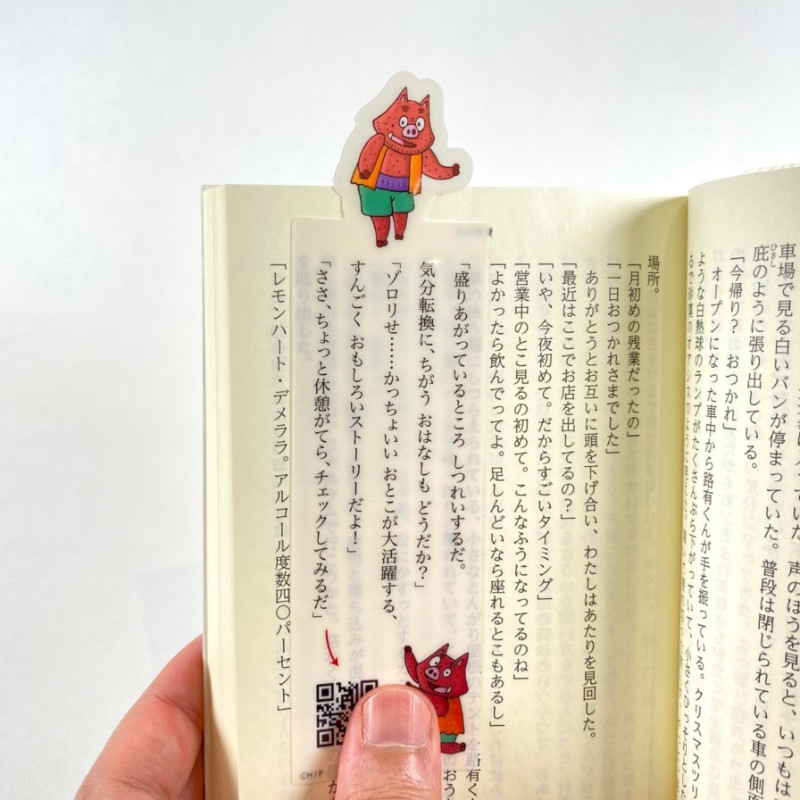 車場で見る白いバンが停まっていた。普段は閉じられている車の側面
ひさし
庇のように張り出している。
「今帰り？　おつかれ」
オープンになった車中から路有くんが手を振っている。クリスマスツリ
ような白熱球のランプがたくさんぶら下がっていて、
場所。
「月初めの残業だったの」
「一日おつかれさまでした」
ありがとうとお互いに頭を下げ合い、わたしはあたりを見回した。
「最近はここでお店を出してるの？」
「いや、今夜初めて。だからすごいタイミング」
「営業中のとこ見るの初めて。こんなふうになってるのね」
「よかったら飲んでってよ。足しんどいなら座れるとこもあるし」
「盛りあがっているところ しつれいするだ。
気分転換に、ちがう おはなしも どうだか？」
「ゾロリせ……かっちょいい おとこが大活躍する、
すんごく おもしろいストーリーだよ！」
「ささ、ちょっと休憩がてら、チェックしてみるだ」
©H/P
「レモンハート・デメララ。アルコール度数四〇パーセント」